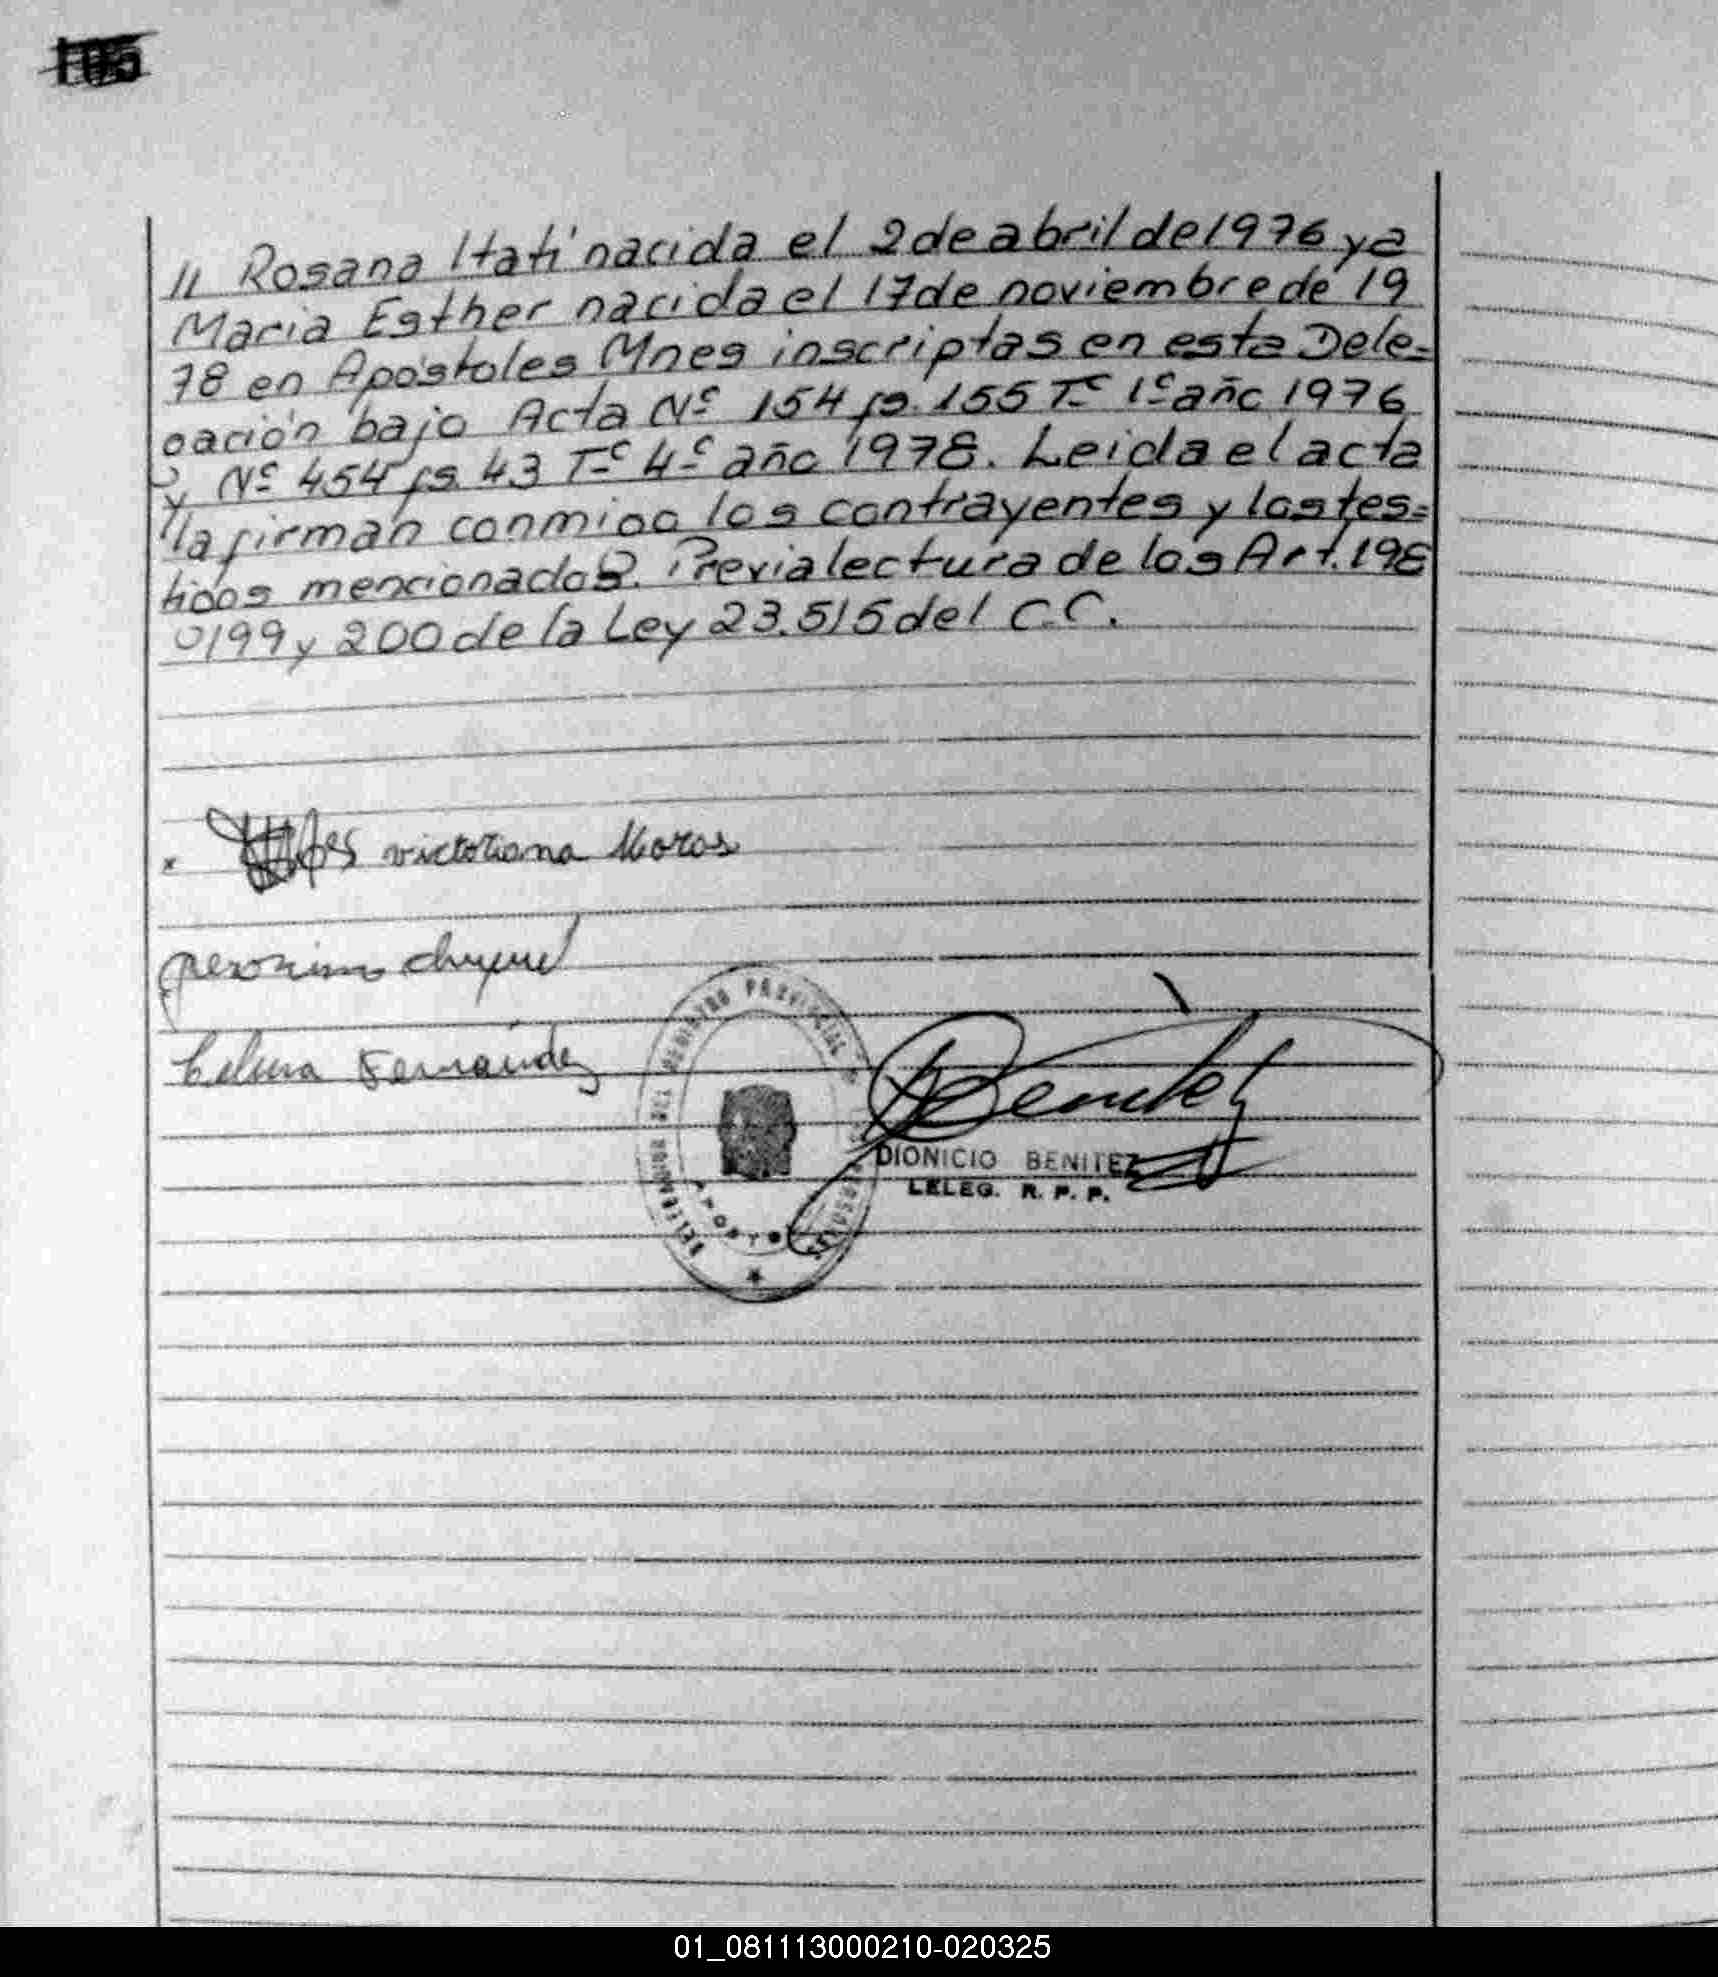 105
11 Rosana Itatí nacida el 2 de abril de 1976 y a
Maria Esther nacida el 17 de noviembre de 19
78 en Apóstoles Mnes inscriptas en esta Dele=
gación bajo Acta Nº 154 fs. 155 Tº 1º año 1976
y Nº 454 fs. 43 Tº 4º año 1978. Leida el acta
la firman conmigo los contrayentes y los tes=
tigos mencionados. Previa lectura de los Art. 198
199 y 200 de la Ley 23.515 del C.C.
x victoriana Moras
Celina Fernández
REGISTRO PROVINCIAL
Benitez
DIONICIO BENITEZ
LELEG. R. P. P.
01_081113000210-020325